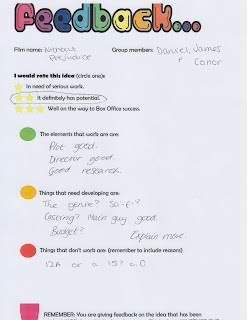 Feedback...
Film name: Without Prejudice
Group members: Daniel, James + Conor
I would rate this idea (circle one):
In need of serious work.
It definitely has potential.
Well on the way to Box Office success.
The elements that work are are:
Plot good.
Director good.
Good research.
Things that need developing are:
The genre? Sci-fi?
Casting? Main guy good.
Budget? Explain more.
Things that don't work are: (remember to include reasons)
12A or a 15?
REMEMBER: You are giving feedback on the idea that has been